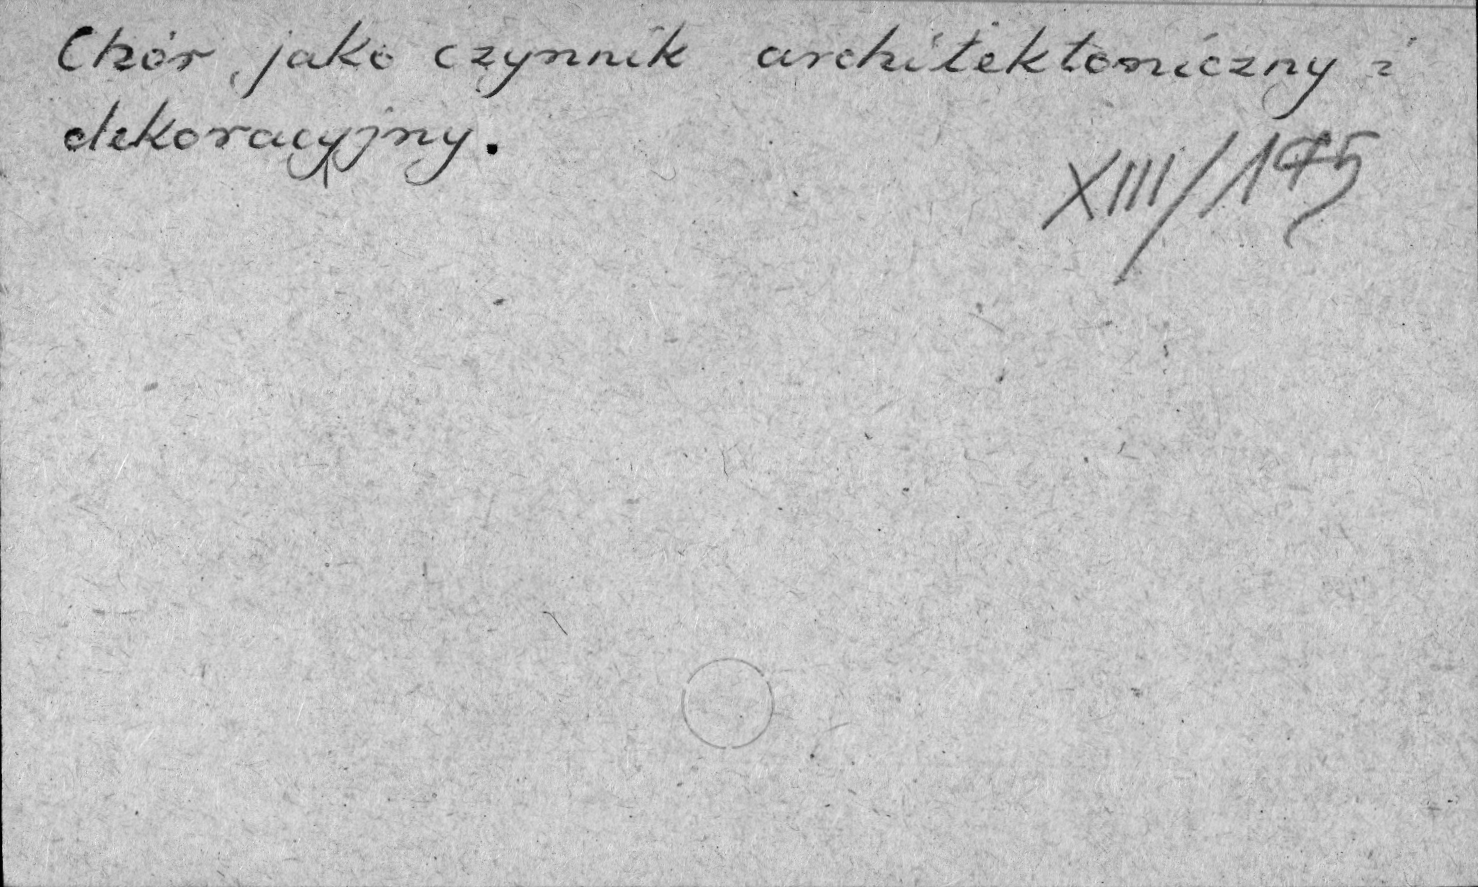 Chór jako czynnik architektoniczny i
dekoracyjny.
XIII/175